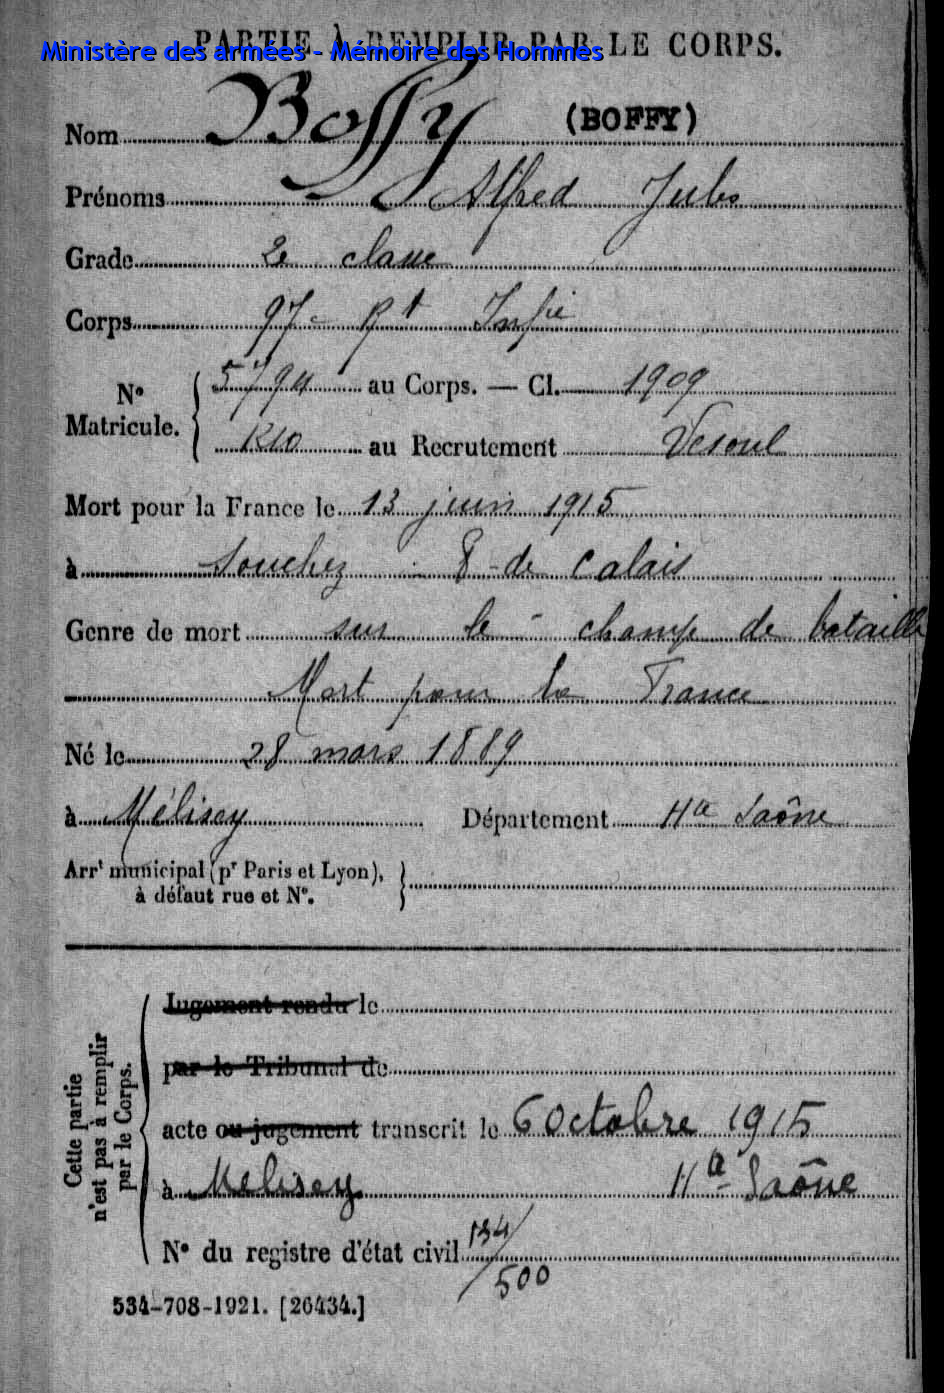 PARTIE À REMPLIR PAR LE CORPS.
Ministère des armées - Mémoire des Hommes
Nom Boffy (BOFFY)
Prénoms Alfred Jules
Grade 2e classe
Corps 97e Rt Infie
No Matricule. { 5794 au Corps. — Cl. 1909
au Recrutement Vesoul
Mort pour la France le 13 juin 1915
à Souchez P. de Calais
Genre de mort sur le champ de bataille
Mort pour la France
Né le 28 mars 1889
à Mélisey Département Hte Saône
Arrt municipal (pr Paris et Lyon), }
à défaut rue et No.
Cette partie n'est pas à remplir par le Corps.
Jugement rendu le
par le Tribunal de
acte ou jugement transcrit le 6 Octobre 1915
à Melisey Hte Saône
No du registre d'état civil 134/500
534-708-1921. [26434.]